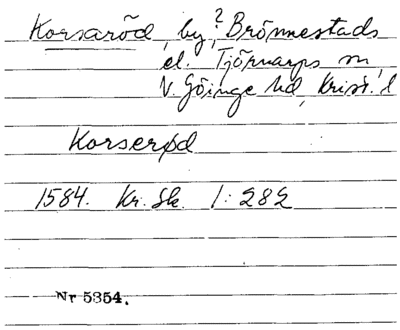 Korsaröd, by, ? Brönnestads
el. Tjörnarps sn,
V. Göinge hd, Krist. l
Korserød
1584. Kr. Sk. 1: 282
Nr 5354.